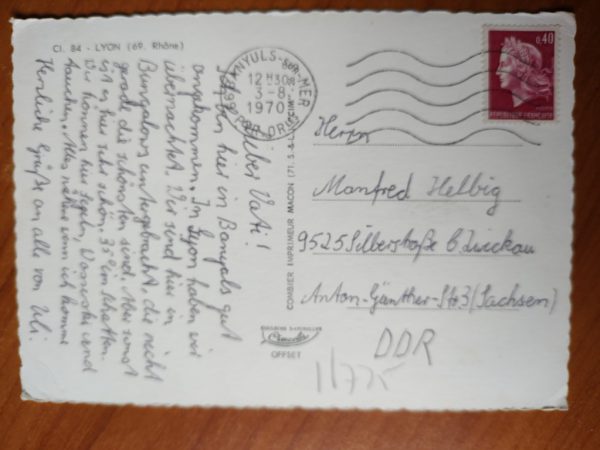 Cl. 84 - LYON (69. Rhône)
Lieber Vati!
Ich bin hier in Banyuls gut
angekommen. In Lyon haben wir
übernachtet. Wir sind hier in
Bungalows untergebracht die nicht
gerade die schönsten sind. Aber sonst
ist es hier sehr schön. 35° im Schatten.
Wir können hier segeln, Wasserski und
tauchen. Alles nähere wenn ich komme
Herzliche Grüße an alle von Uli.
BANYULS-SUR-MER
12H30
3-8
1970
PYR. ORIES
0,40
REPUBLIQUE FRANÇAISE
COMBIER IMPRIMEUR MACON (71. S.-&-L.) "CIM"
Herrn
Manfred Helbig
9525 Silberstraße b. Zwickau
Anton-Günther-Str 3 (Sachsen)
DDR
OFFSET